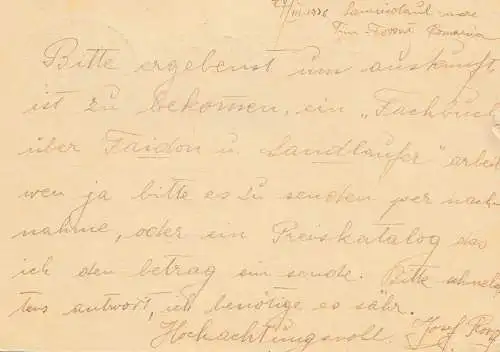 Sânnicolaul mare
Tim-Toront Romania
Bitte ergebenst um auskunft
ist zu bekommen, ein „Fachbuch
über Faidon u. Landlaufer" arbei
wen ja bitte es zu senden per nach
nahme, oder ein Preiskatalog das
ich den betrag ein sende. Bitte schnels
tens antwort, ich benötige es sähr.
Hochachtungsvoll. Josef